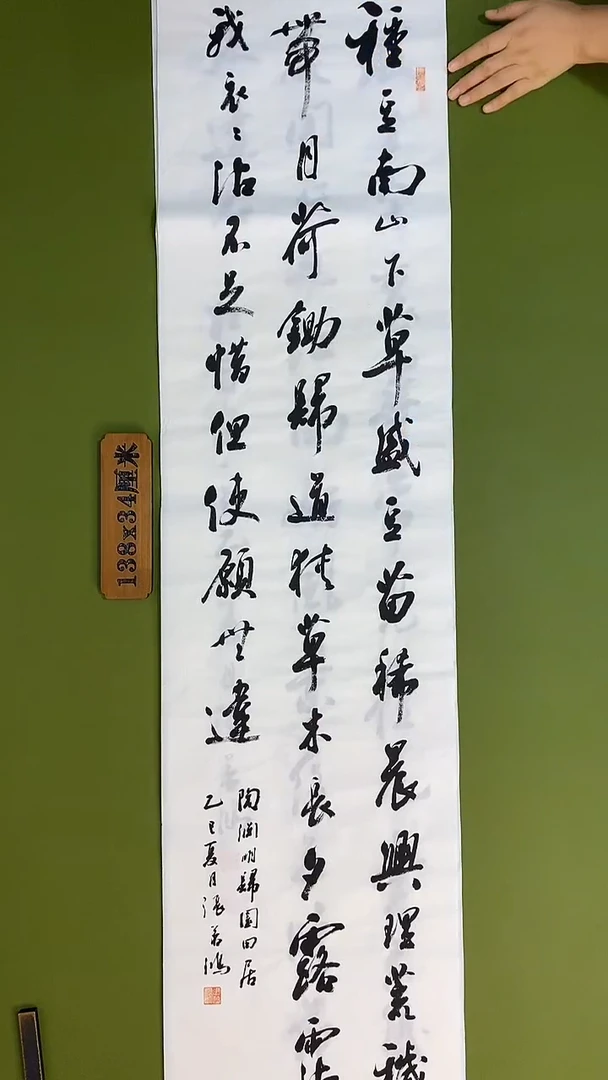 種豆南山下草盛豆苗稀晨興理荒穢
帶月荷鋤歸道狹草木長夕露霑
我衣〻沾不足惜但使願無違
陶淵明歸園田居
乙巳夏月張
138x34厘米